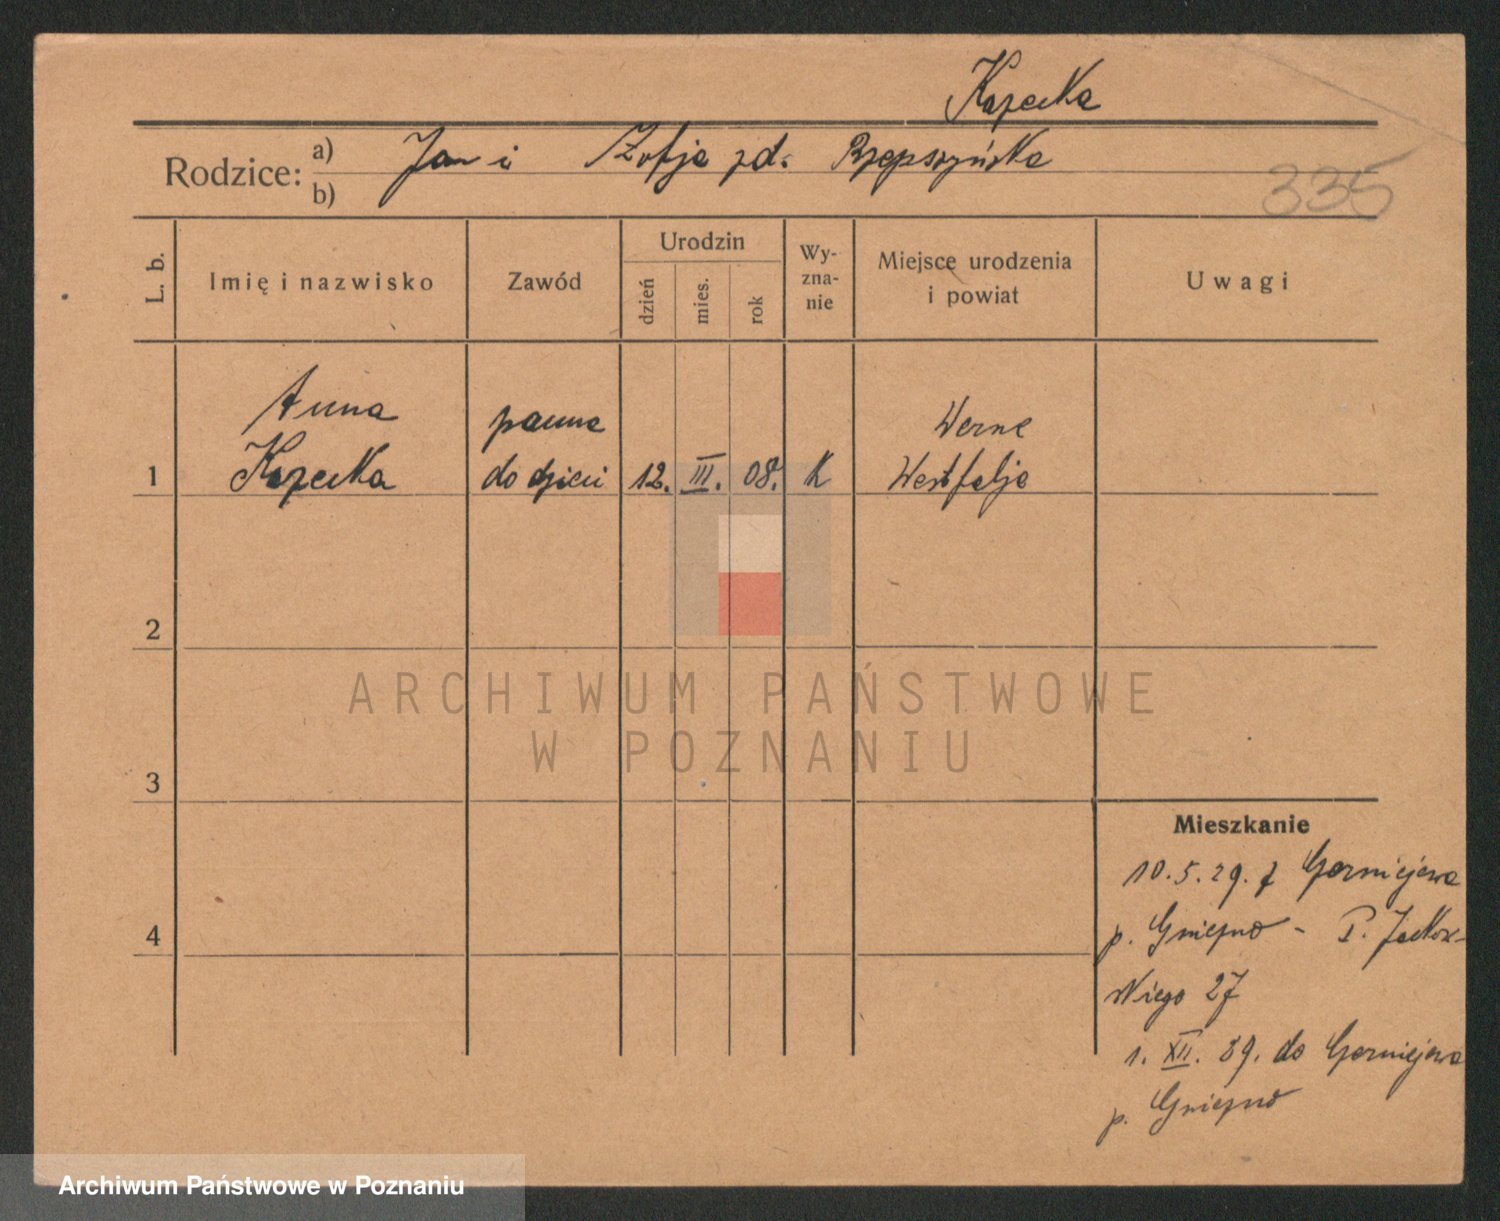 Kazecka
Rodzice: a) Jan i Zofja zd. Rzepszyńska
b)
335
L. b.
Imię i nazwisko
Zawód
Urodzin
dzień
mies.
rok
Wy-
zna-
nie
Miejsce urodzenia
i powiat
Uwagi
Anna
panna
Werne
1
do dzieci
12.
III.
08.
K
Westfalja
2
3
4
ARCHIWUM PAŃSTWOWE
W POZNANIU
Mieszkanie
10.5.29. z
p. Gniezno - P. Jackow-
skiego 27
1. XII. 39. do
p. Gniezno
Archiwum Państwowe w Poznaniu